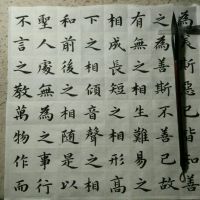 為美斯惡已皆知善
之為善斯不善已故
有無之相生難易之
相成長短之相形高
下之相傾音聲之相
和前後之相隨是以
聖人處無為之事行
不言之教萬物作而